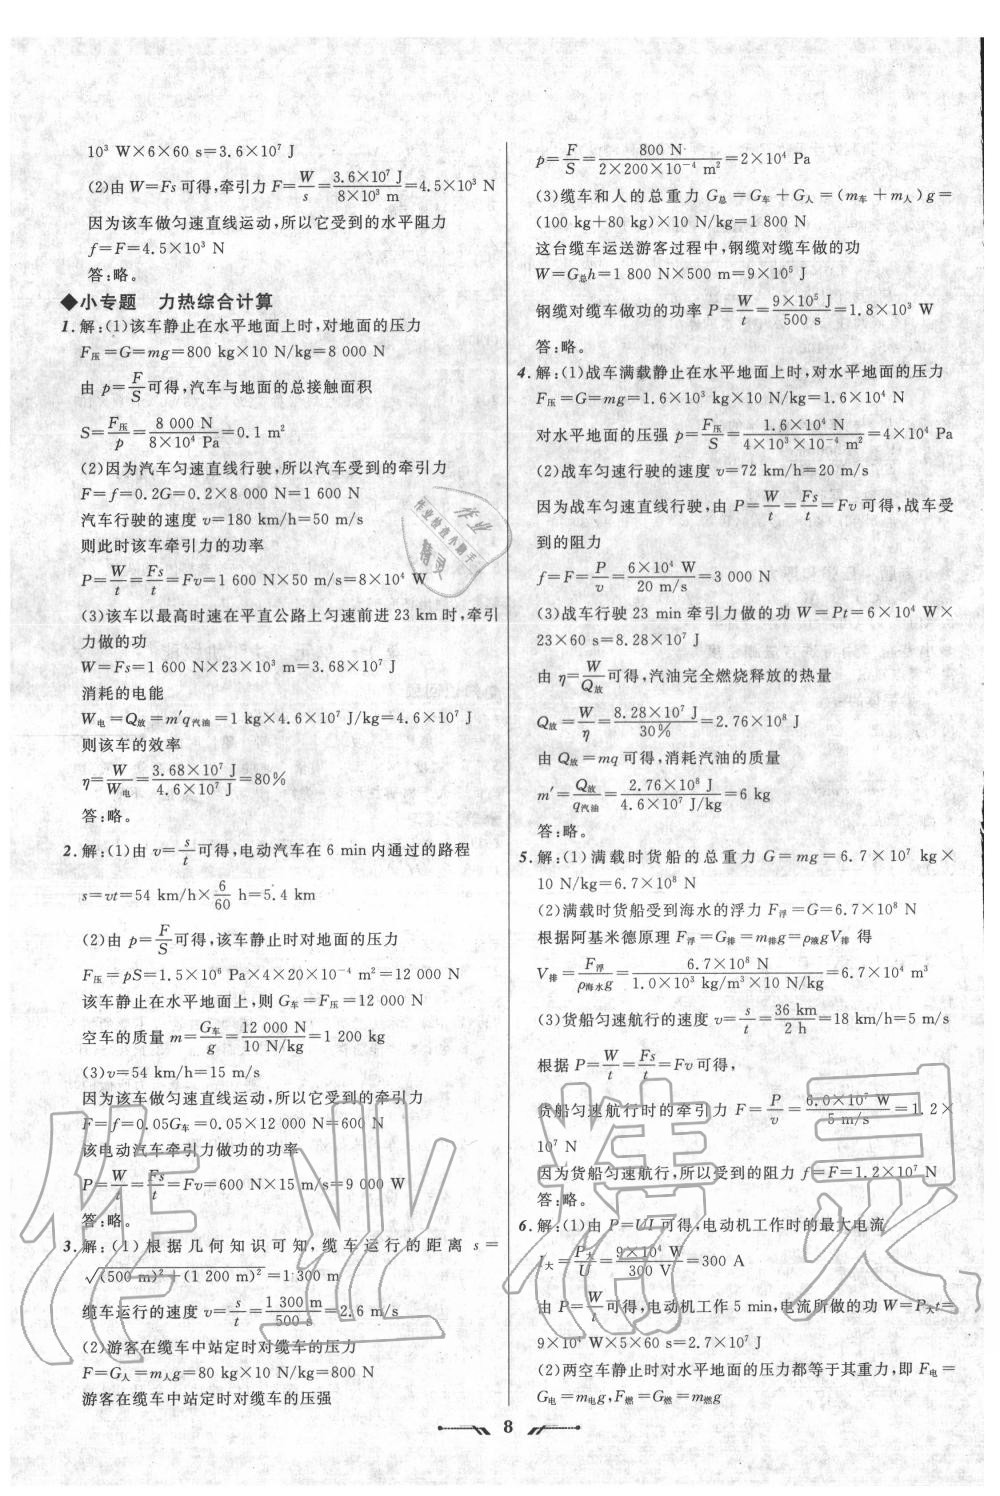 10³ W×6×60 s=3.6×10⁷ J
(2)由 W=Fs 可得,牵引力 F=W/s=3.6×10⁷ J/8×10³ m=4.5×10³ N
因为该车做匀速直线运动,所以它受到的水平阻力
f=F=4.5×10³ N
答:略。
◆小专题 力热综合计算
1.解:(1)该车静止在水平地面上时,对地面的压力
F压=G=mg=800 kg×10 N/kg=8 000 N
由 p=F/S可得,汽车与地面的总接触面积
S=F压/p=8 000 N/8×10⁴ Pa=0.1 m²
(2)因为汽车匀速直线行驶,所以汽车受到的牵引力
F=f=0.2G=0.2×8 000 N=1 600 N
汽车行驶的速度 v=180 km/h=50 m/s
则此时该车牵引力的功率
P=W/t=Fs/t=Fv=1 600 N×50 m/s=8×10⁴ W
(3)该车以最高时速在平直公路上匀速前进 23 km 时,牵引
力做的功
W=Fs=1 600 N×23×10³ m=3.68×10⁷ J
消耗的电能
W电=Q放=m′q汽油=1 kg×4.6×10⁷ J/kg=4.6×10⁷ J
则该车的效率
η=W/W电=3.68×10⁷ J/4.6×10⁷ J=80%
答:略。
2.解:(1)由 v=s/t可得,电动汽车在 6 min 内通过的路程
s=vt=54 km/h×6/60 h=5.4 km
(2)由 p=F/S可得,该车静止时对地面的压力
F压=pS=1.5×10⁶ Pa×4×20×10⁻⁴ m²=12 000 N
该车静止在水平地面上,则 G车=F压=12 000 N
空车的质量 m=G车/g=12 000 N/10 N/kg=1 200 kg
(3)v=54 km/h=15 m/s
因为该车做匀速直线运动,所以它受到的牵引力
F=f=0.05G车=0.05×12 000 N=600 N
该电动汽车牵引力做功的功率
P=W/t=Fs/t=Fv=600 N×15 m/s=9 000 W
答:略。
3.解:(1)根据几何知识可知,缆车运行的距离 s=
√(500 m)²+(1 200 m)²=1 300 m
缆车运行的速度 v=s/t=1 300 m/500 s=2.6 m/s
(2)游客在缆车中站定时对缆车的压力
F=G人=m人g=80 kg×10 N/kg=800 N
游客在缆车中站定时对缆车的压强
p=F/S=800 N/2×200×10⁻⁴ m²=2×10⁴ Pa
(3)缆车和人的总重力 G总=G车+G人=(m车+m人)g=
(100 kg+80 kg)×10 N/kg=1 800 N
这台缆车运送游客过程中,钢缆对缆车做的功
W=G总h=1 800 N×500 m=9×10⁵ J
钢缆对缆车做功的功率 P=W/t=9×10⁵ J/500 s=1.8×10³ W
答:略。
4.解:(1)战车满载静止在水平地面上时,对水平地面的压力
F压=G=mg=1.6×10³ kg×10 N/kg=1.6×10⁴ N
对水平地面的压强 p=F压/S=1.6×10⁴ N/4×10³×10⁻⁴ m²=4×10⁴ Pa
(2)战车匀速行驶的速度 v=72 km/h=20 m/s
因为战车匀速直线行驶,由 P=W/t=Fs/t=Fv 可得,战车受
到的阻力
f=F=P/v=6×10⁴ W/20 m/s=3 000 N
(3)战车行驶 23 min 牵引力做的功 W=Pt=6×10⁴ W×
23×60 s=8.28×10⁷ J
由 η=W/Q放可得,汽油完全燃烧释放的热量
Q放=W/η=8.28×10⁷ J/30%=2.76×10⁸ J
由 Q放=mq 可得,消耗汽油的质量
m′=Q放/q汽油=2.76×10⁸ J/4.6×10⁷ J/kg=6 kg
答:略。
5.解:(1)满载时货船的总重力 G=mg=6.7×10⁷ kg×
10 N/kg=6.7×10⁸ N
(2)满载时货船受到海水的浮力 F浮=G=6.7×10⁸ N
根据阿基米德原理 F浮=G排=m排g=ρ液gV排 得
V排=F浮/ρ海水g=6.7×10⁸ N/1.0×10³ kg/m³×10 N/kg=6.7×10⁴ m³
(3)货船匀速航行的速度 v=s/t=36 km/2 h=18 km/h=5 m/s
根据 P=W/t=Fs/t=Fv 可得,
货船匀速航行时的牵引力 F=P/v=6.0×10⁷ W/5 m/s=1.2×
10⁷ N
因为货船匀速航行,所以受到的阻力 f=F=1.2×10⁷ N
答:略。
6.解:(1)由 P=UI 可得,电动机工作时的最大电流
I大=P大/U=9×10⁴ W/300 V=300 A
由 P=W/t可得,电动机工作 5 min,电流所做的功 W=P大t=
9×10⁴ W×5×60 s=2.7×10⁷ J
(2)两空车静止时对水平地面的压力都等于其重力,即 F电=
G电=m电g,F燃=G燃=m燃g
8
作业
作业检查小助手
精灵
作业精灵